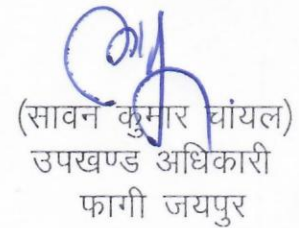 (सावन कुमार चांयल)
उपखण्ड अधिकारी
फागी जयपुर